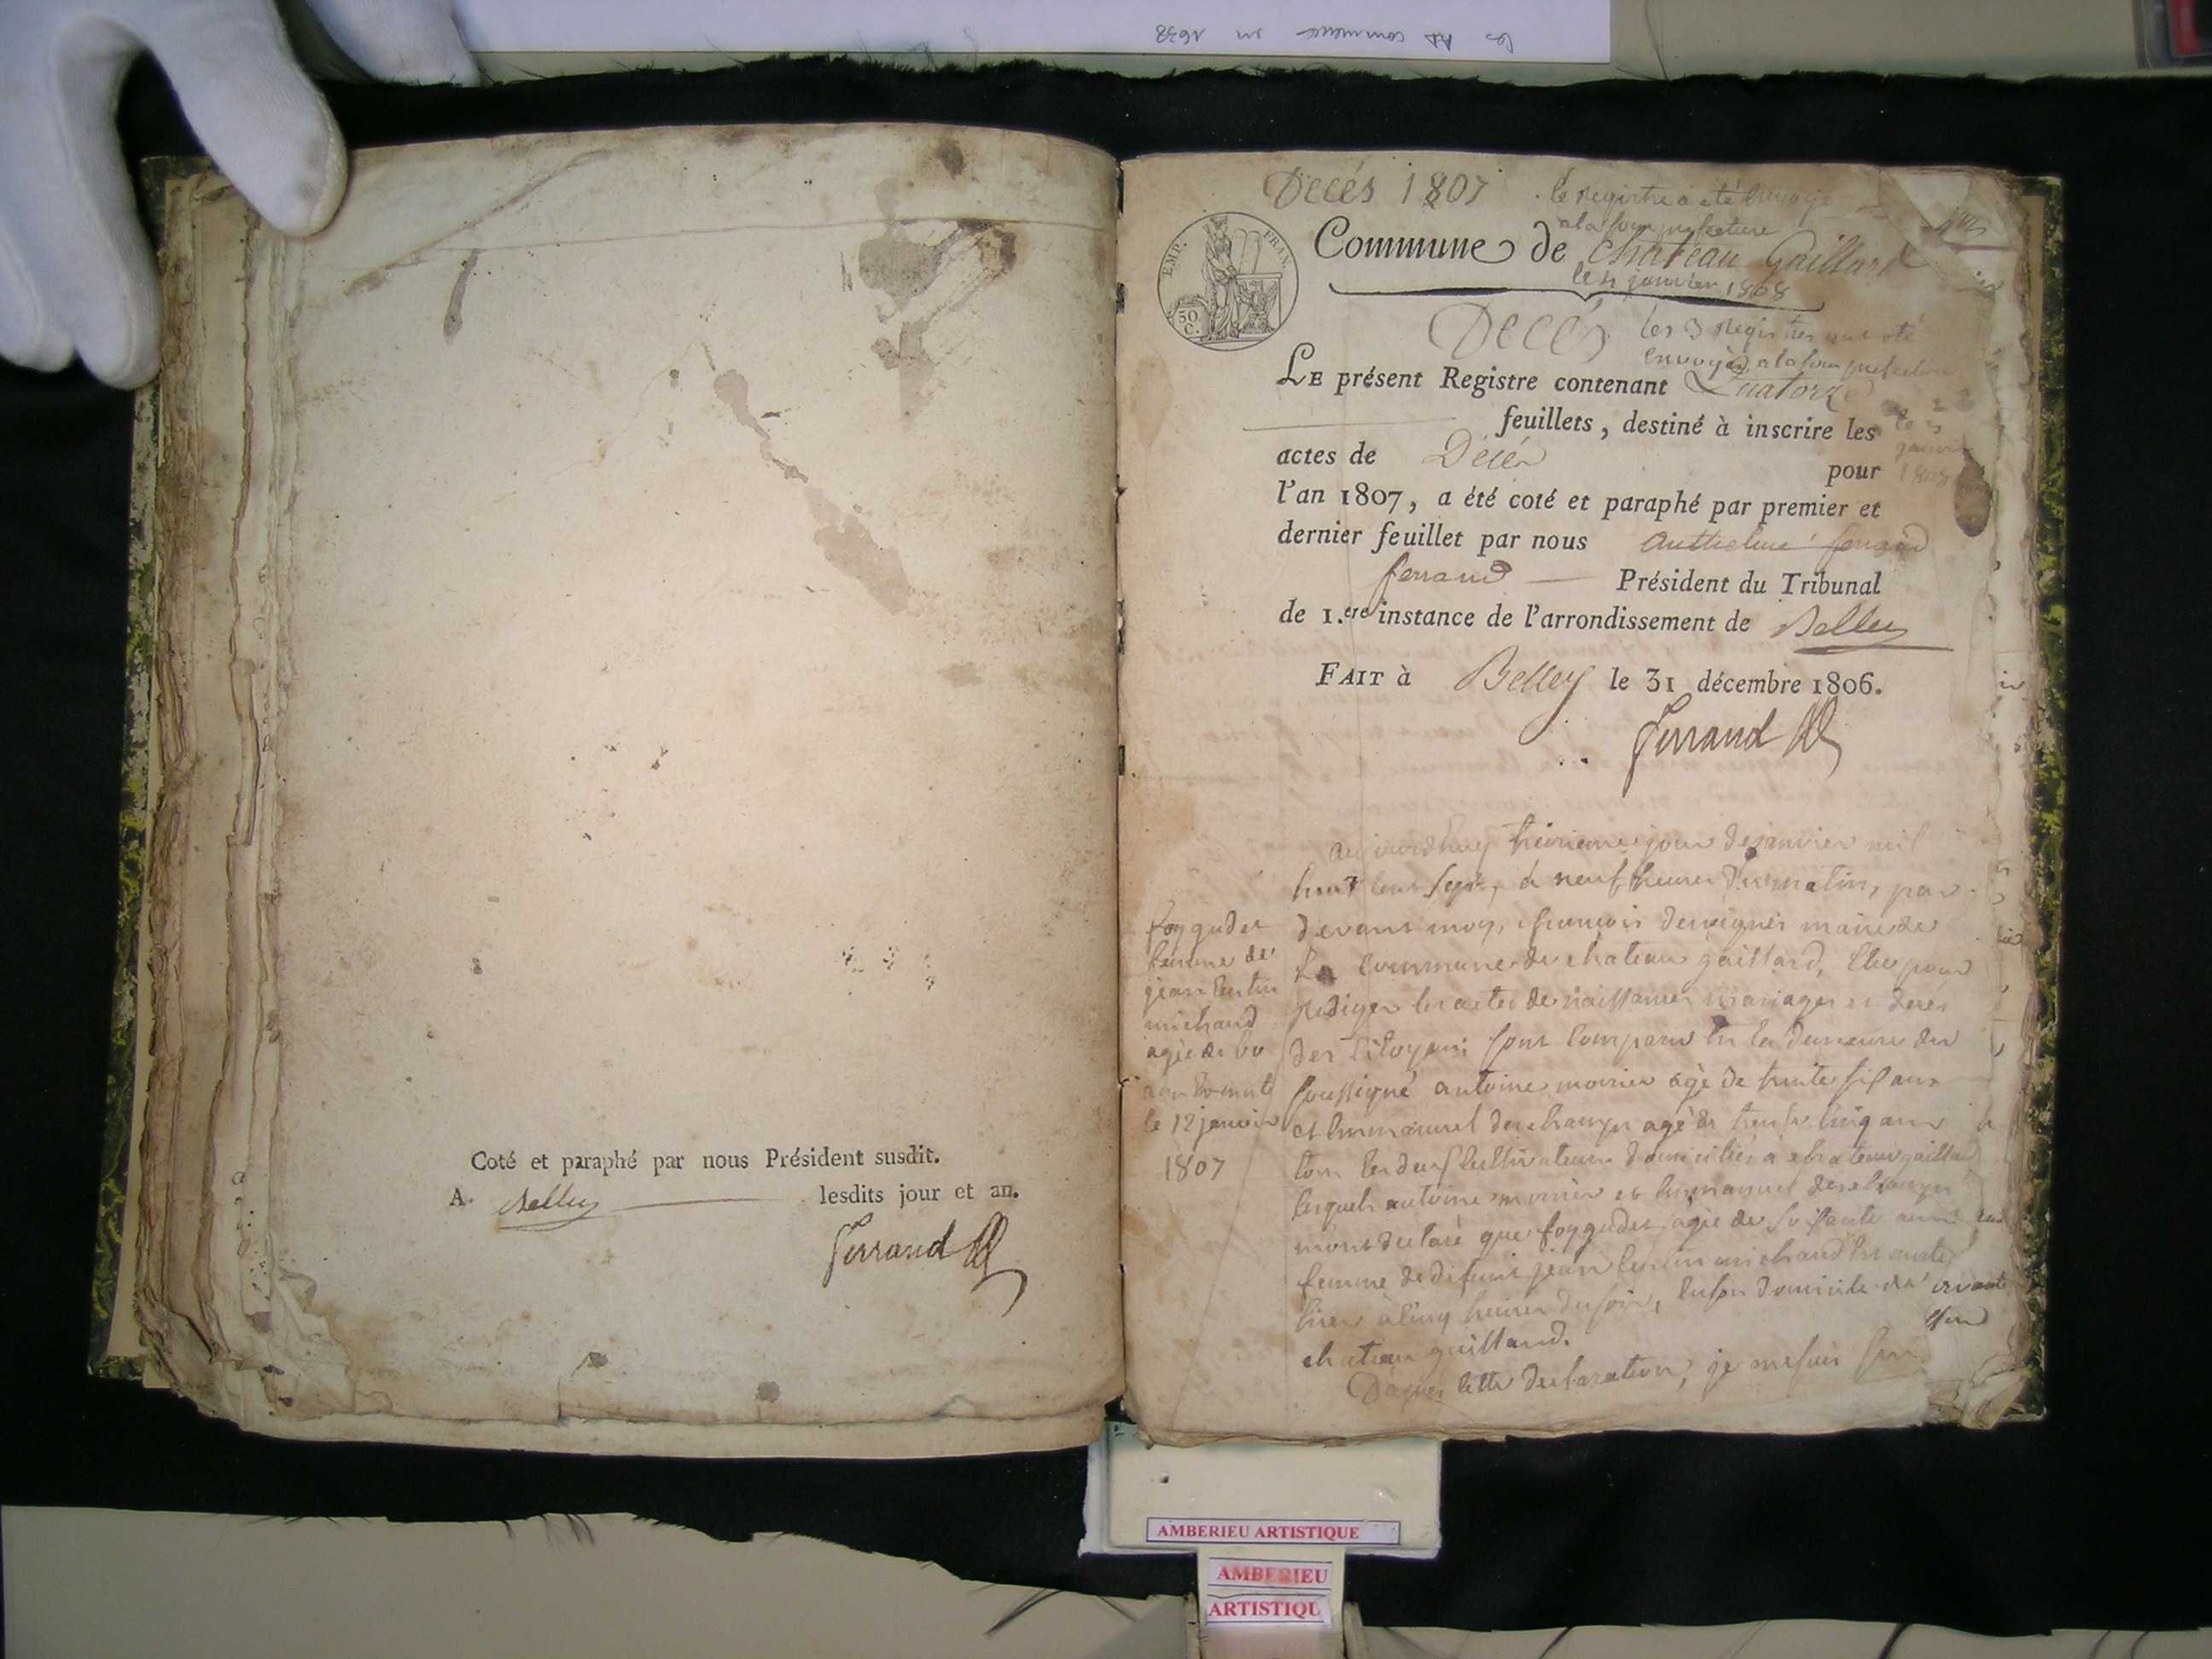 les commence en 1638
Coté et paraphé par nous Président susdit.
A. Belley lesdits jour et an.
Ferrand
Decés 1807
le registre a été envoyé
a la sous prefecture
EMP. FRAN.
50
C.
Commune de Chateau Gaillard
le 4 janvier 1808
Decés
les 3 registres ont été
envoyés a la sous prefecture
LE présent Registre contenant Quatorze
feuillets, destiné à inscrire les
actes de Décés pour
janvier
1808
l'an 1807, a été coté et paraphé par premier et
dernier feuillet par nous Anthelme ferrand
ferrand Président du Tribunal
de 1.ere instance de l'arrondissement de Belley
FAIT à Belley le 31 décembre 1806.
Ferrand
aujourdhuy treizieme jour de janvier mil
huit cent sept, à neuf heures du matin, par
devant moy, françois maire de
la commune de chateau gaillard, Elu pour
rediger les actes de naissances mariages et decés
des Citoyens sont comparu en la demeure du
soussigné antoine monier agé de trente six ans
et Emmanuel deschamps agé de trente cinq ans
tous les deux cultivateurs domiciliés à chateau gaillard
lesquels antoine monier et Emmanuel deschamps
mont declaré que foy gudet agée de soixante ans
femme de defunt jean michaud est morte
hier à cinq heures du soir, en son domicile de
chateau gaillard.
D'apres cette declaration, je me suis sur
foy gudet
femme de
jean
michaud
agée de 60
ans
le 12 janvier
1807
AMBERIEU ARTISTIQUE
AMBERIEU
ARTISTIQU